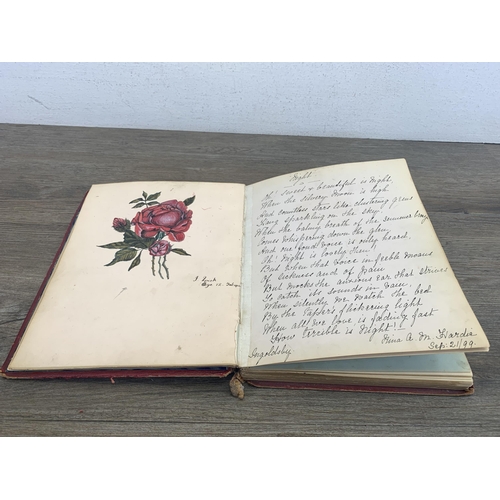 Night.
Oh! sweet & beautiful is Night
When the silvery Moon is high
And countless Stars like clustering gems
Hang sparkling on the Sky.
When the balmy breath of the summer breeze
Comes whispering down the glen
And one fond voice is only heard.
Oh! Night is lovely Then!
But when that Voice in feeble Moans
Of Sickness and of Pain
But mocks the anxious ear that strives
To catch its sounds in Vain
When silently we watch the bed
By the Tapers flickering light
When all we love is fading fast
How terrible is Night!!
Ingoldsby
Nina A. M. Hardie
Sep. 21/99.